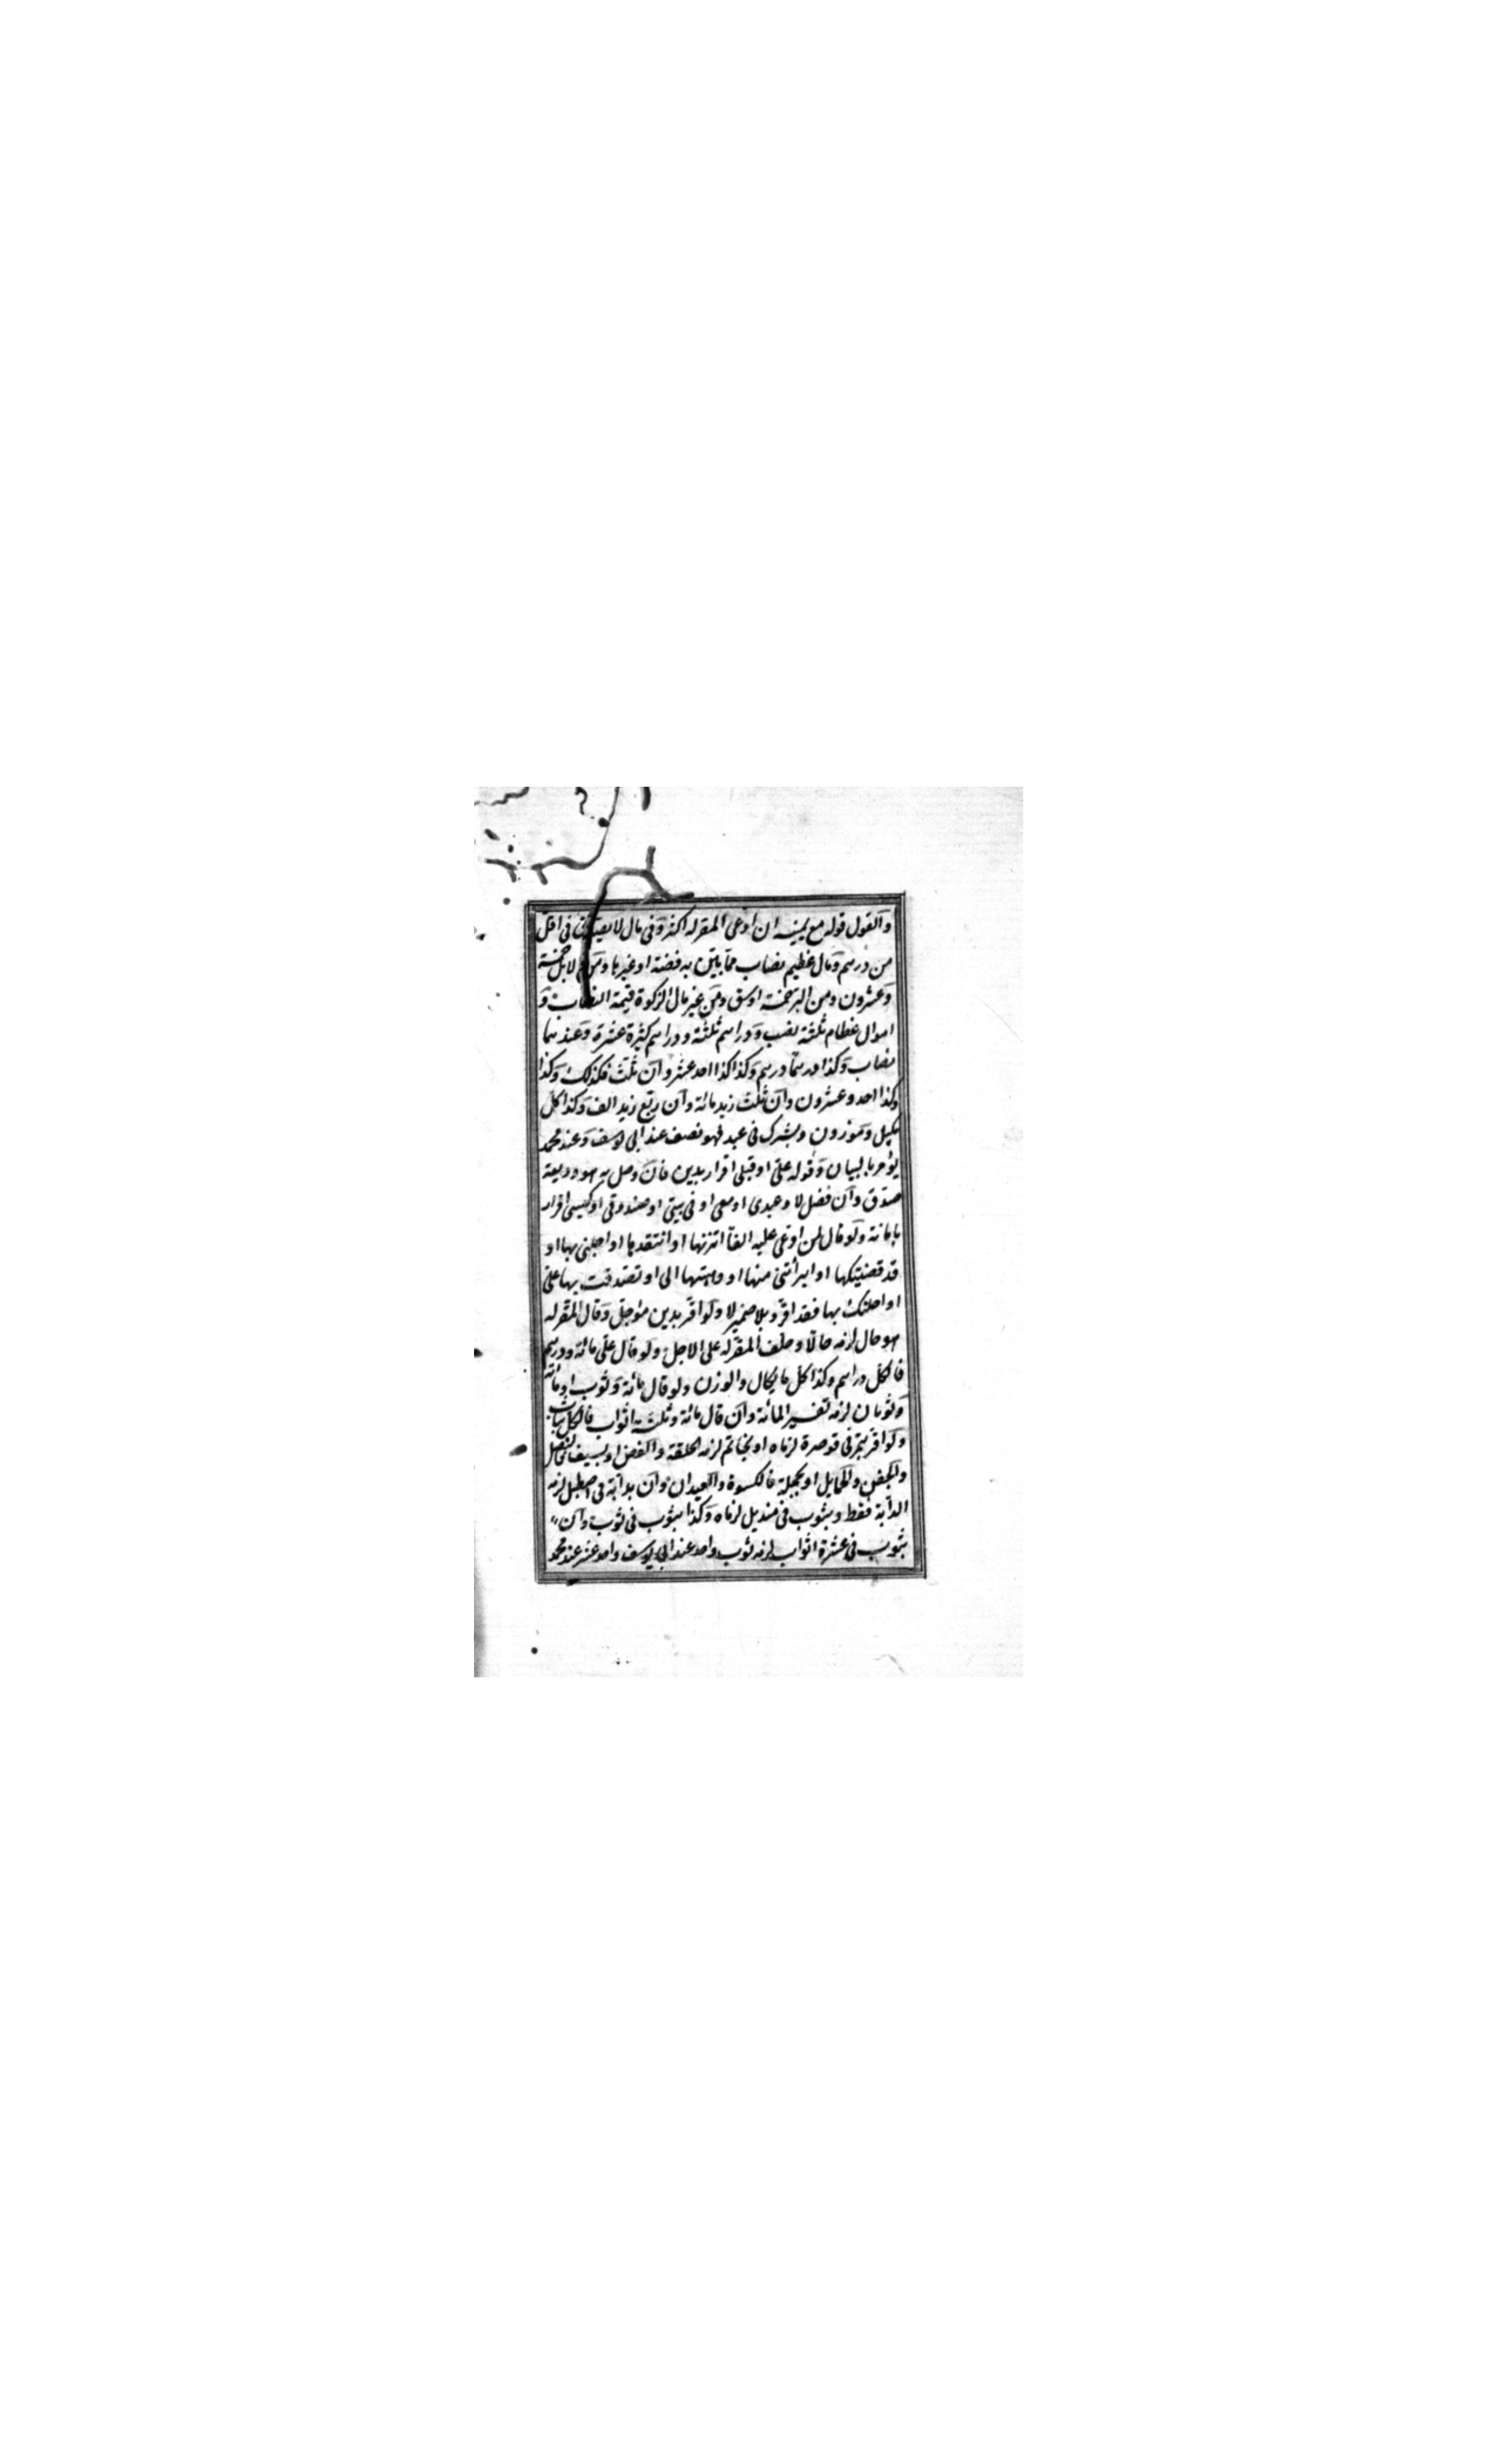 والقول قوله مع يمينه ان ادعى المقر له اكثر وفى مال لا يصدق فى اقل
من درهم ومال عظيم نصاب مما بين به فضة او غيرها ومن الابل خمسة
وعشرون ومن البر خمسة اوسق ومن غير مال الزكوة قيمة النصاب و
اموال عظام ثلثة نصب ودراهم ثلثة ودراهم كثيرة عشرة وعندهما
نصاب وكذا درهما درهم وكذا كذا احد عشر وان ثلث فكذلك وكذا
وكذا احد وعشرون وان ثلث زيد مائة وان ربع زيد الف وكذا كل
مكيل وموزون وبشرك فى عبد فهو نصف عند ابى يوسف وعند محمد
يؤمر بالبيان وقوله على او قبلى اقرار بدين فان وصل به هو وديعة
صدق وان فصل لا وعندى او معى او فى بيتى او صندوقى او كيسى اقرار
بامانة ولو قال لمن ادعى عليه الفا اتزنها او انتقدها او اجلنى بها او
قد قضيتكها او ابرأتنى منها او وهبتها الى او تصدقت بها على
او احلتك بها فقد اقر وبلا ضمير لا ولو اقر بدين مؤجل وقال المقر له
هو حال لزمه حالا وحلف المقر له على الاجل ولو قال على مائة ودرهم
فالكل دراهم وكذا كل ما يكال والوزن ولو قال مائة وثوب او مائة
وثوبان لزمه تفسير المائة وان قال مائة وثلثة اثواب فالكل ثياب
ولو اقر بتمر فى قوصرة لزماه او بخاتم لزمه الحلقة والفص او بسيف فالنصل
والجفن والحمايل او بحجلة فالكسوة والعيدان وان بدابة فى اصطبل لزمه
الدابة فقط وبثوب فى منديل لزماه وكذا بثوب فى ثوب وان
بثوب فى عشرة اثواب لزمه ثوب واحد عند ابى يوسف واحد عشر عند محمد